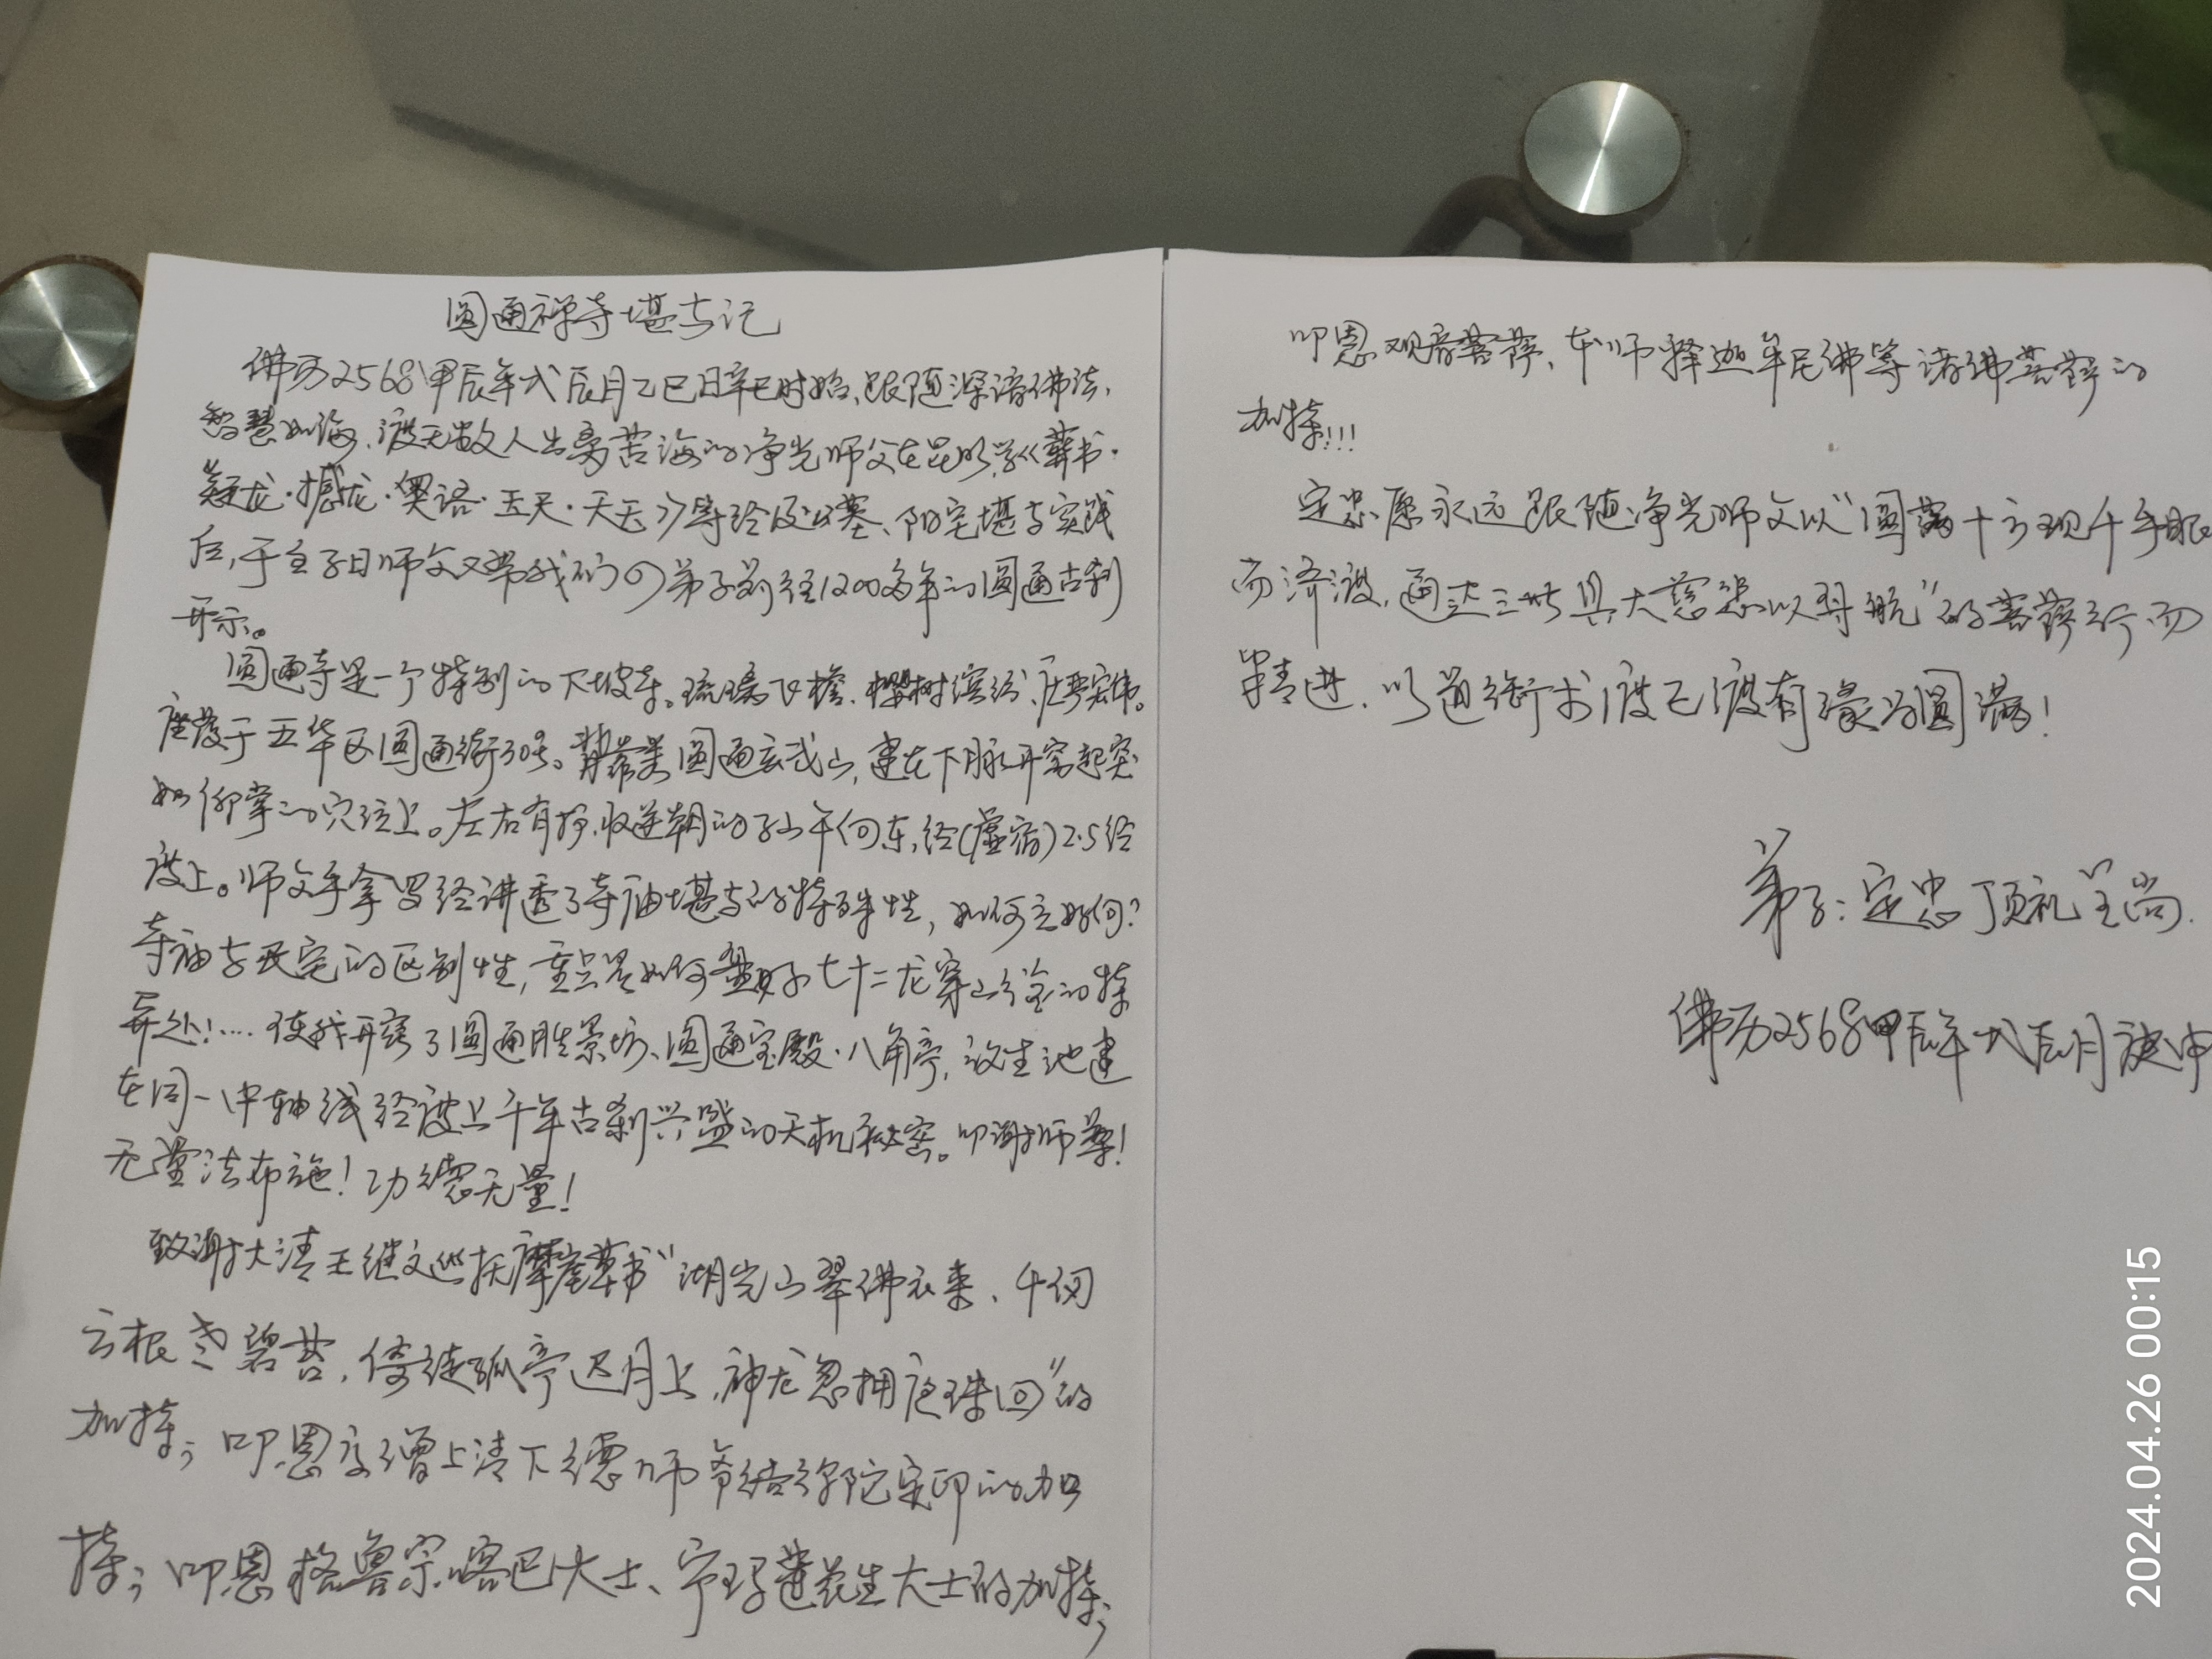 圆通禅寺堪与记
佛历2568甲辰年戊辰月乙巳日辛巳时始、跟随深谙佛法、
智慧如海、渡无数人出离苦海的净光师父在昆明学《葬书·
疑龙·撼龙·奥语·玉尺·天玉》等经及公墓、阳宅堪与实践
后,于壬子日师父又带我们の弟子前往1200多年的圆通古刹
开示。
圆通寺是一个特别的下坡寺。琉璃飞檐、樱树缤纷、庄严宏伟。
座落于五华区圆通街30号。背靠美圆通玄武山,建在下脉开窝起突
如仰掌的穴位上。左右有护,收逆朝的子山午向东,经(虚宿)2.5经
度上。师父手拿罗经讲透了寺庙堪与的特殊性,如何立好向?
寺庙与民宅的区别性,重点是如何盘好七十二龙穿山经的特
异处!....使我开窍了圆通胜景坊、圆通宝殿·八角亭,放生池建
在同一中轴线经度上千年古刹兴盛的天机秘密。叩谢师尊!
无量法布施!功德无量!
致谢大清王继文巡抚摩崖草书"湖光山翠佛衣来、千仞
云根老碧苔,倚徒孤亭迟月上,神龙忽拥夜珠回"的
加持;叩恩高僧上清下德师爷结弥陀定印的加
持;叩恩格鲁宗喀巴大士、宁玛莲花生大士的加持;
叩恩观音菩萨、本师释迦牟尼佛等诸佛菩萨的
加持!!!
定忠愿永远跟随净光师父以"圆满十方现千手眼
而济渡,通达三世具大慈悲以导航"的菩萨行而
精进、以道衔术渡己渡有缘为圆满!
弟子:定忠顶礼
佛历2568甲辰年戊辰月庚申
2024.04.26 00:15